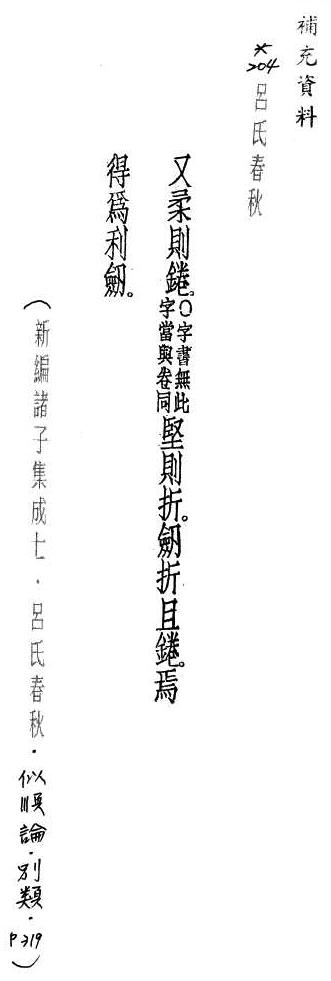 補充資料
*204 呂氏春秋
又柔則錈。○字書無此字當與卷同堅則折。劒折且錈。焉
得為利劒。
(新編諸子集成七.呂氏春秋.似順論.別類.P319)